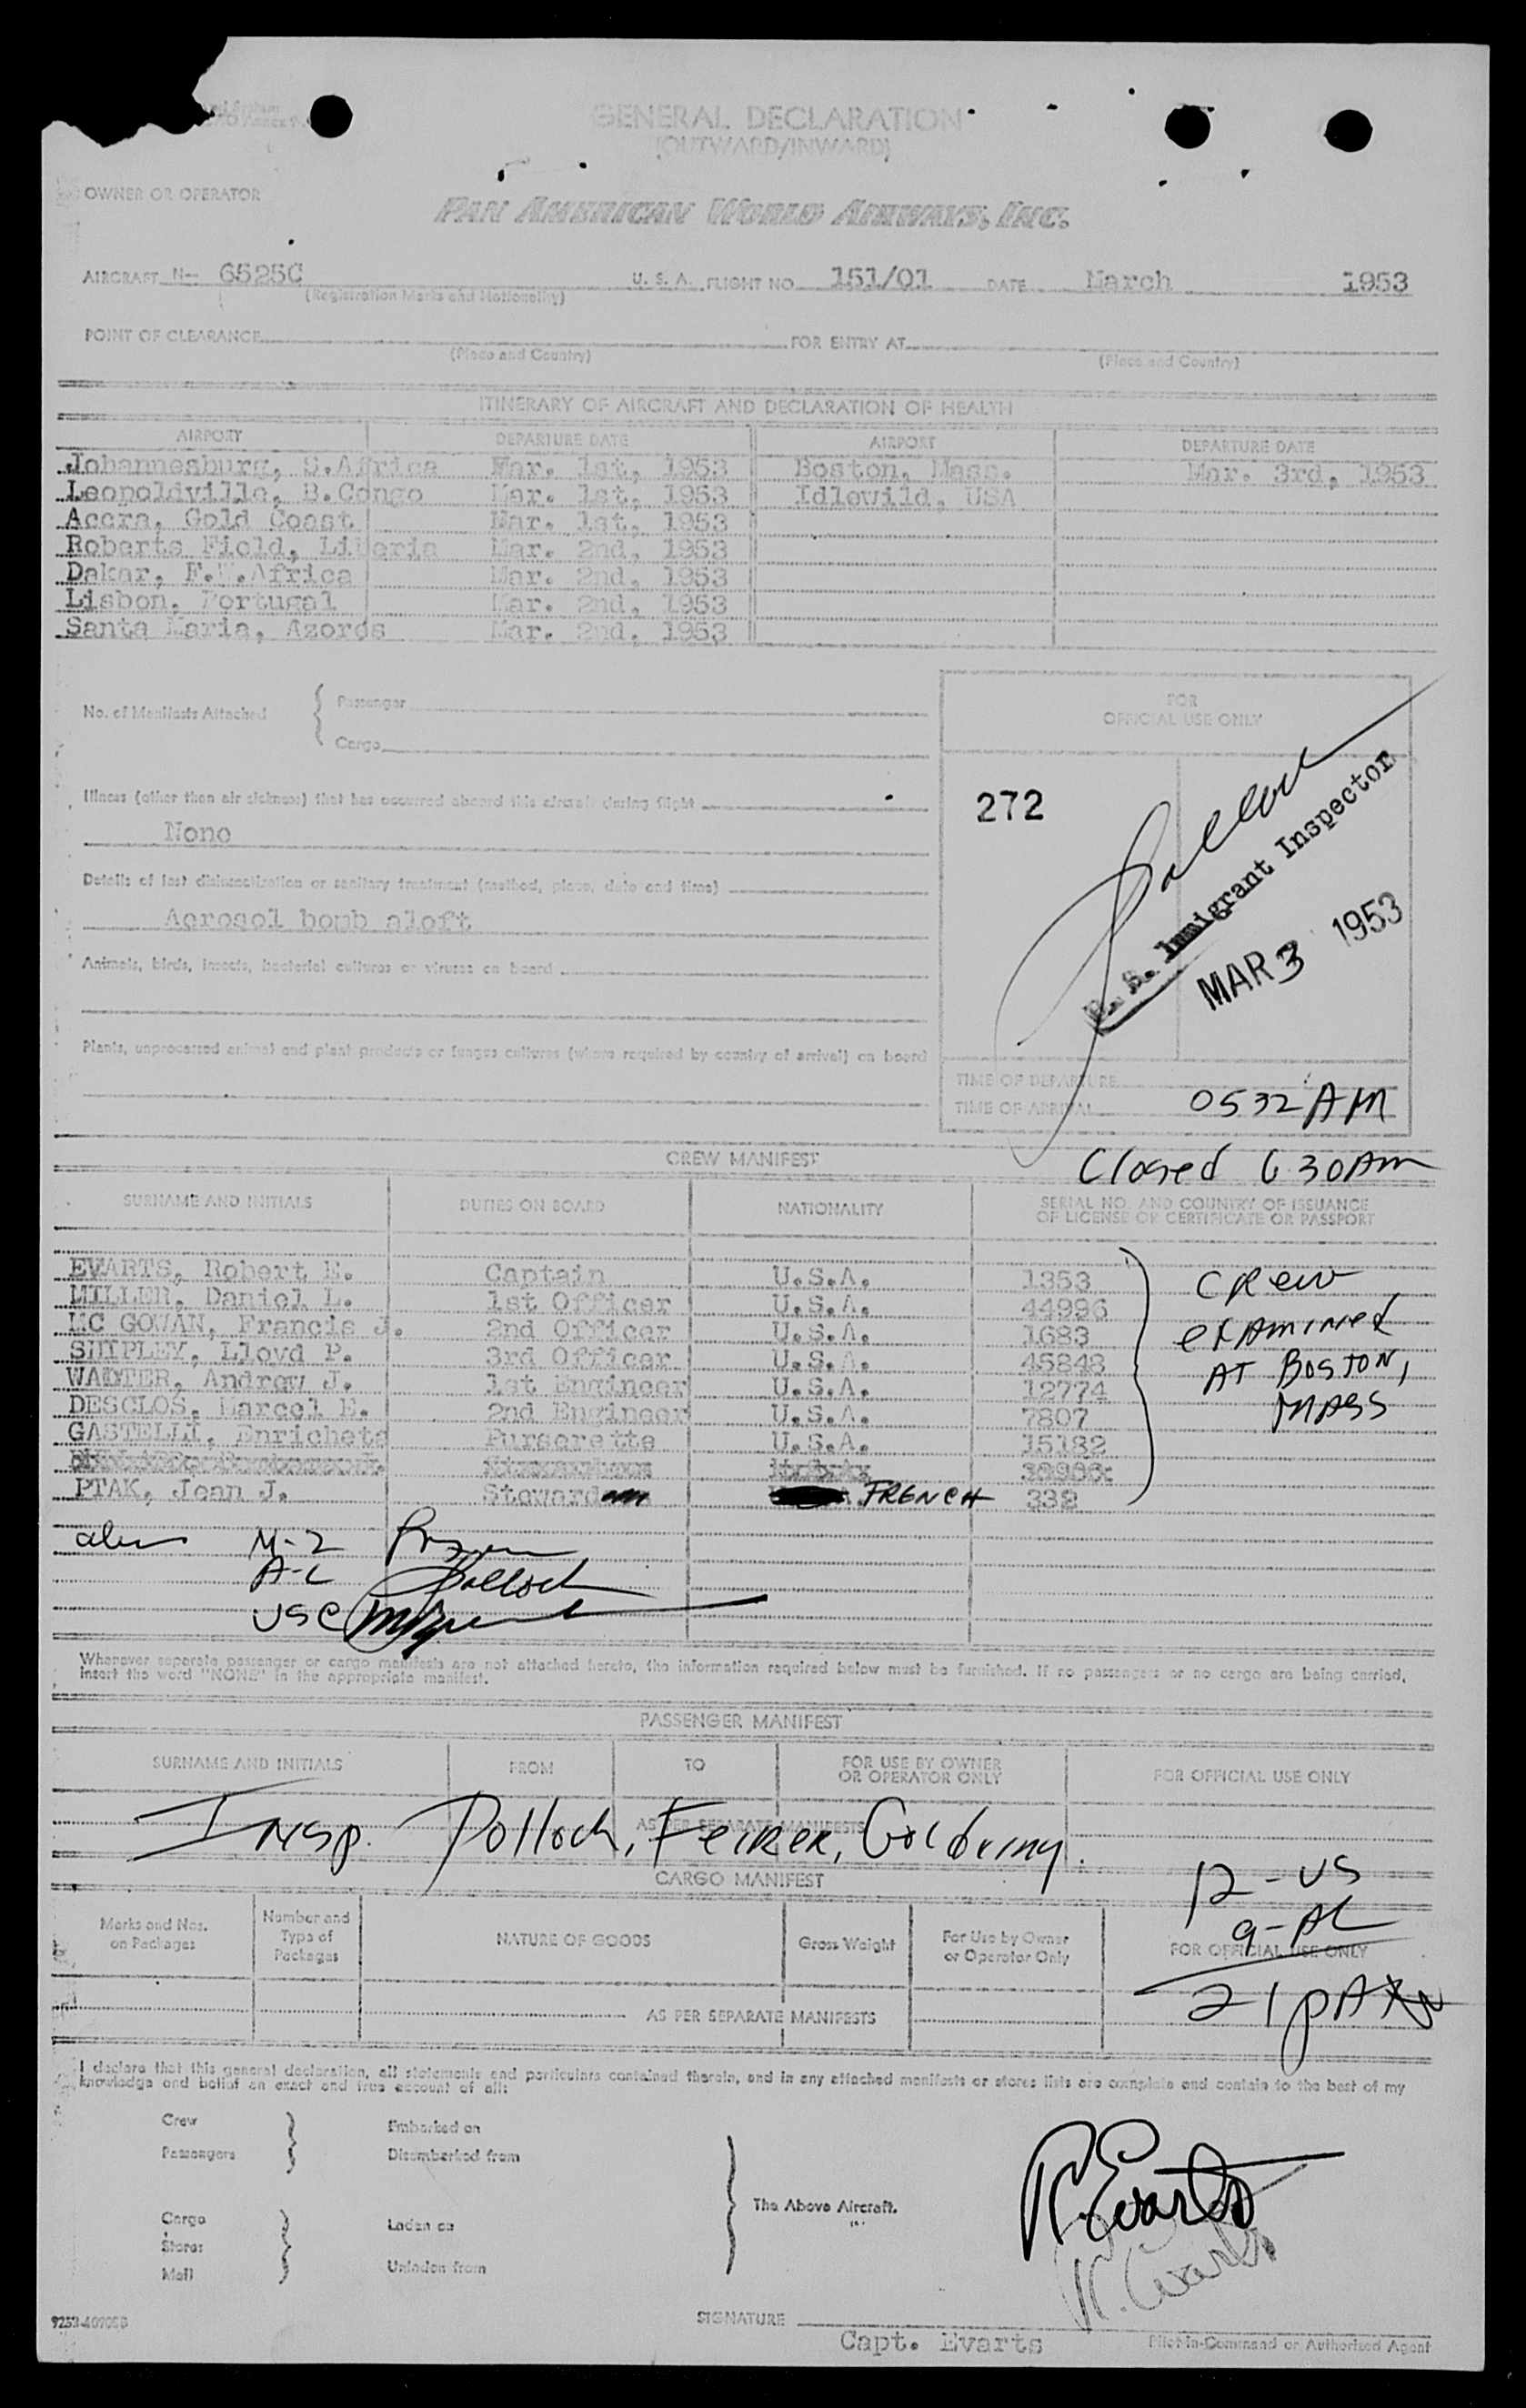 GENERAL DECLARATION
(OUTWARD/INWARD)
OWNER OR OPERATOR
PAN AMERICAN WORLD AIRWAYS, INC.
AIRCRAFT N- 6525C U. S. A. FLIGHT NO. 151/01 DATE March 1953
(Registration Marks and Nationality)
POINT OF CLEARANCE FOR ENTRY AT
(Place and Country) (Place and Country)
ITINERARY OF AIRCRAFT AND DECLARATION OF HEALTH
AIRPORT DEPARTURE DATE AIRPORT DEPARTURE DATE
Johannesburg, S.Africa Mar. 1st, 1953 Boston, Mass. Mar. 3rd, 1953
Leopoldville, B.Congo Mar. 1st, 1953 Idlewild, USA
Accra, Gold Coast Mar. 1st, 1953
Roberts Field, Liberia Mar. 2nd, 1953
Dakar, F.W.Africa Mar. 2nd, 1953
Lisbon, Portugal Mar. 2nd, 1953
Santa Maria, Azores Mar. 2nd, 1953
No. of Manifests Attached
Passenger
Cargo
FOR
OFFICIAL USE ONLY
Illness (other than air sickness) that has occurred aboard this aircraft during flight
None
272
Pollock
U. S. Immigrant Inspector
MAR 3 1953
Details of last disinsectization or sanitary treatment (method, place, date and time)
Aerosol bomb aloft
Animals, birds, insects, bacterial cultures or viruses on board
Plants, unprocessed animal and plant products or fungus cultures (where required by country of arrival) on board
TIME OF DEPARTURE
TIME OF ARRIVAL 0532 AM
Closed 6 30 AM
CREW MANIFEST
SURNAME AND INITIALS DUTIES ON BOARD NATIONALITY SERIAL NO. AND COUNTRY OF ISSUANCE
OF LICENSE OR CERTIFICATE OR PASSPORT
EVARTS, Robert E. Captain U.S.A. 1353
MILLER, Daniel L. 1st Officer U.S.A. 44996
MC GOWAN, Francis J. 2nd Officer U.S.A. 1683
SHIPLEY, Lloyd P. 3rd Officer U.S.A. 45848
Andrew J. 1st Engineer U.S.A. 12774
DESCLOS, Marcel E. 2nd Engineer U.S.A. 7807
GASTELLI, Enricheta Purserette U.S.A. 15182
PTAK, Jean J. Steward FRENCH 332
Crew
examined
AT BOSTON,
MASS
M-2
A-L Pollock
USC
Whenever separate passenger or cargo manifests are not attached hereto, the information required below must be furnished. If no passengers or no cargo are being carried,
insert the word "NONE" in the appropriate manifest.
PASSENGER MANIFEST
SURNAME AND INITIALS FROM TO FOR USE BY OWNER
OR OPERATOR ONLY FOR OFFICIAL USE ONLY
AS PER SEPARATE MANIFESTS
Insp. Pollock, Feirer, Goldring.
CARGO MANIFEST
12-US
9-AL
21 PAX
Marks and Nos.
on Packages
Number and
Type of
Packages
NATURE OF GOODS
Gross Weight
For Use by Owner
or Operator Only
FOR OFFICIAL USE ONLY
AS PER SEPARATE MANIFESTS
I declare that this general declaration, all statements and particulars contained therein, and in any attached manifests or stores lists are complete and contain to the best of my
knowledge and belief an exact and true account of all:
Crew
Passengers
Embarked on
Disembarked from
Cargo
Stores
Mail
Laden on
Unladen from
The Above Aircraft.
R. Evarts
R. Evarts
SIGNATURE
Capt. Evarts
Pilot-in-Command or Authorized Agent